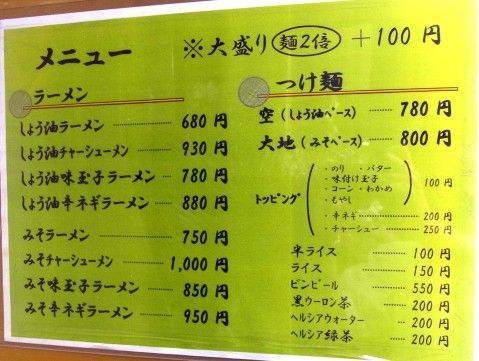 メニュー
※大盛り 麺2倍 +100円
ラーメン
しょう油ラーメン 680円
しょう油チャーシューメン 930円
しょう油味玉子ラーメン 780円
しょう油辛ネギラーメン 880円
みそラーメン 750円
みそチャーシューメン 1,000円
みそ味玉子ラーメン 850円
みそ辛ネギラーメン 950円
つけ麺
空(しょう油ベース) 780円
大地(みそベース) 800円
トッピング
・のり ・バター
・味付け玉子
・コーン ・わかめ
・もやし
100円
・辛ネギ 200円
・チャーシュー 250円
半ライス 100円
ライス 150円
ビンビール 550円
黒ウーロン茶 200円
ヘルシアウォーター 200円
ヘルシア緑茶 200円